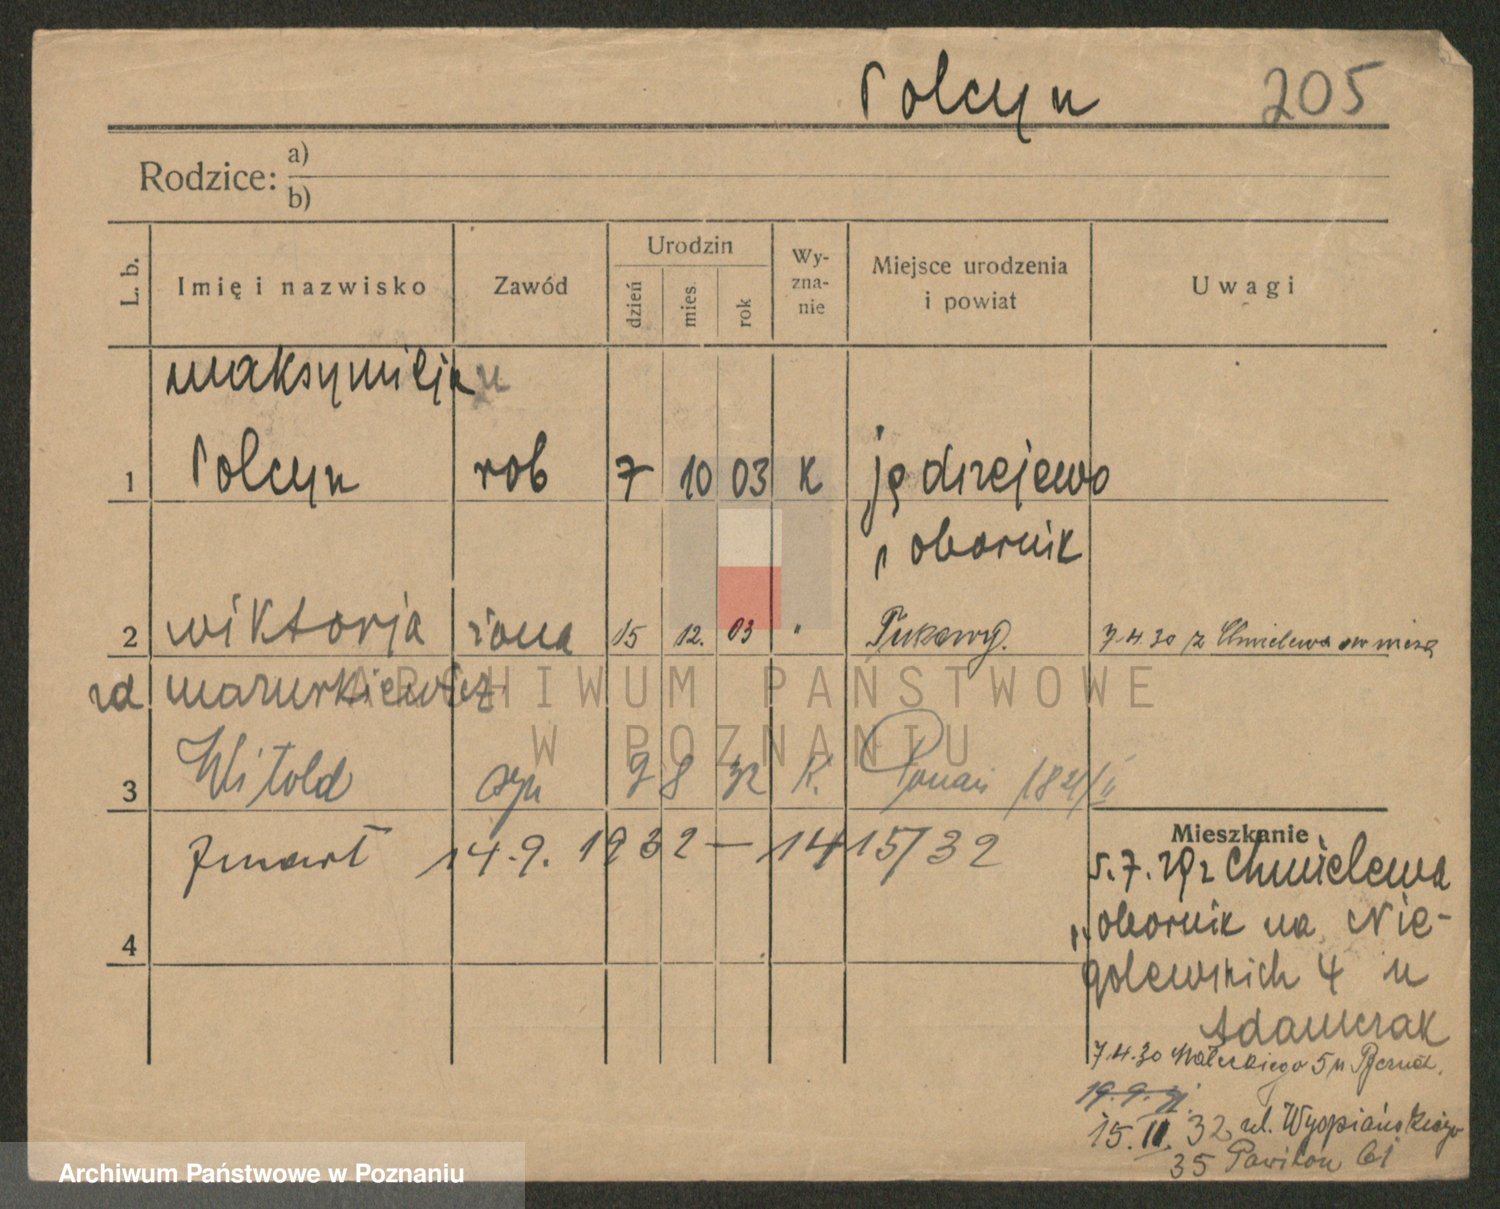 Polcyn 205
Rodzice: a)
b)
L. b. Imię i nazwisko Zawód Urodzin dzień mies. rok Wyznanie Miejsce urodzenia i powiat Uwagi
Maksymiljan
1 Polcyn rob 7 10 03 K Jędrzejewo
p obornik
2 Wiktorja żona 15 12. 03 " 7.4.30 z Chmielewa
zd Mazurkiewicz
3 Witold syn 9 8 32 K.
zmarł 14.9.1932 — 1415/32
4
Mieszkanie
5.7. z Chmielewa
p. obornik na Nie-
golewskich 4 u
Adamczak
7.4.30 Małeckiego 5 u
19.9.31.
15.II.32 ul. Wyspiańskiego
35 Pawilon 61
ARCHIWUM PAŃSTWOWE
W POZNANIU
Archiwum Państwowe w Poznaniu